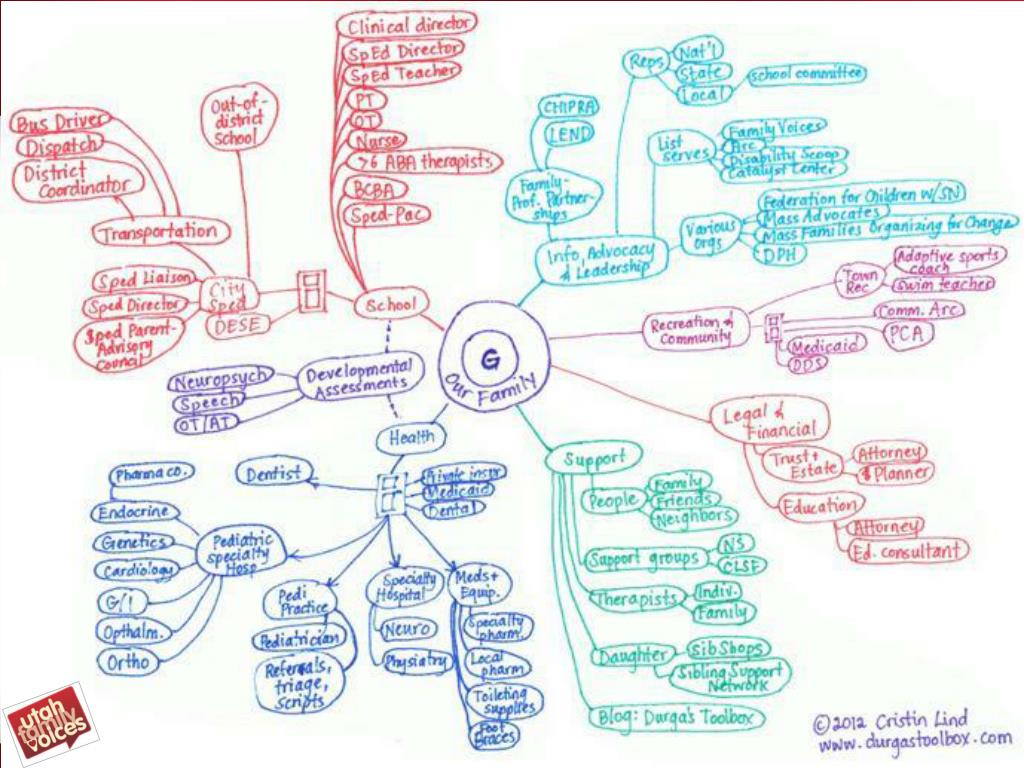 Clinical director
SpEd Director
SpEd Teacher
PT
OT
Nurse
>6 ABA therapists
BCBA
Sped-Pac
School
Out-of-
district
School
Bus Driver
Dispatch
District
Coordinator
Transportation
Sped Liaison
Sped Director
Sped Parent-
Advisory
Council
City
Sped
DESE
Reps
Nat'l
State
Local
school committee
CHIPRA
LEND
Family-
Prof. Partner-
ships
List
serves
Family Voices
Arc
Disability Scoop
Catalyst Center
Various
orgs
Federation for Children w/SN
Mass Advocates
Mass Families Organizing for Change
DPH
Info, Advocacy
& Leadership
Recreation &
Community
Town
Rec
Adaptive sports
coach
Swim teacher
Comm. Arc
PCA
Medicaid
DDS
G
Our Family
Developmental
Assessments
Neuropsych
Speech
OT/AT
Legal &
Financial
Trust +
Estate
Attorney
$ Planner
Education
Attorney
Ed. consultant
Health
Dentist
Private insur
Medicaid
Dental
Pharma co.
Endocrine
Genetics
Cardiology
G/I
Opthalm.
Ortho
Pediatric
Specialty
Hosp
Pedi
Practice
Pediatrician
Referrals,
triage,
scripts
Specialty
Hospital
Neuro
Physiatry
Meds +
Equip.
Specialty
pharm.
Local
pharm
Toileting
supplies
Foot
Braces
Support
People
Family
Friends
Neighbors
Support groups
NS
CLSF
Therapists
Indiv.
Family
Daughter
SibShops
Sibling Support
Network
Blog: Durga's Toolbox
©2012 Cristin Lind
www.durgastoolbox.com
utah
family
voices